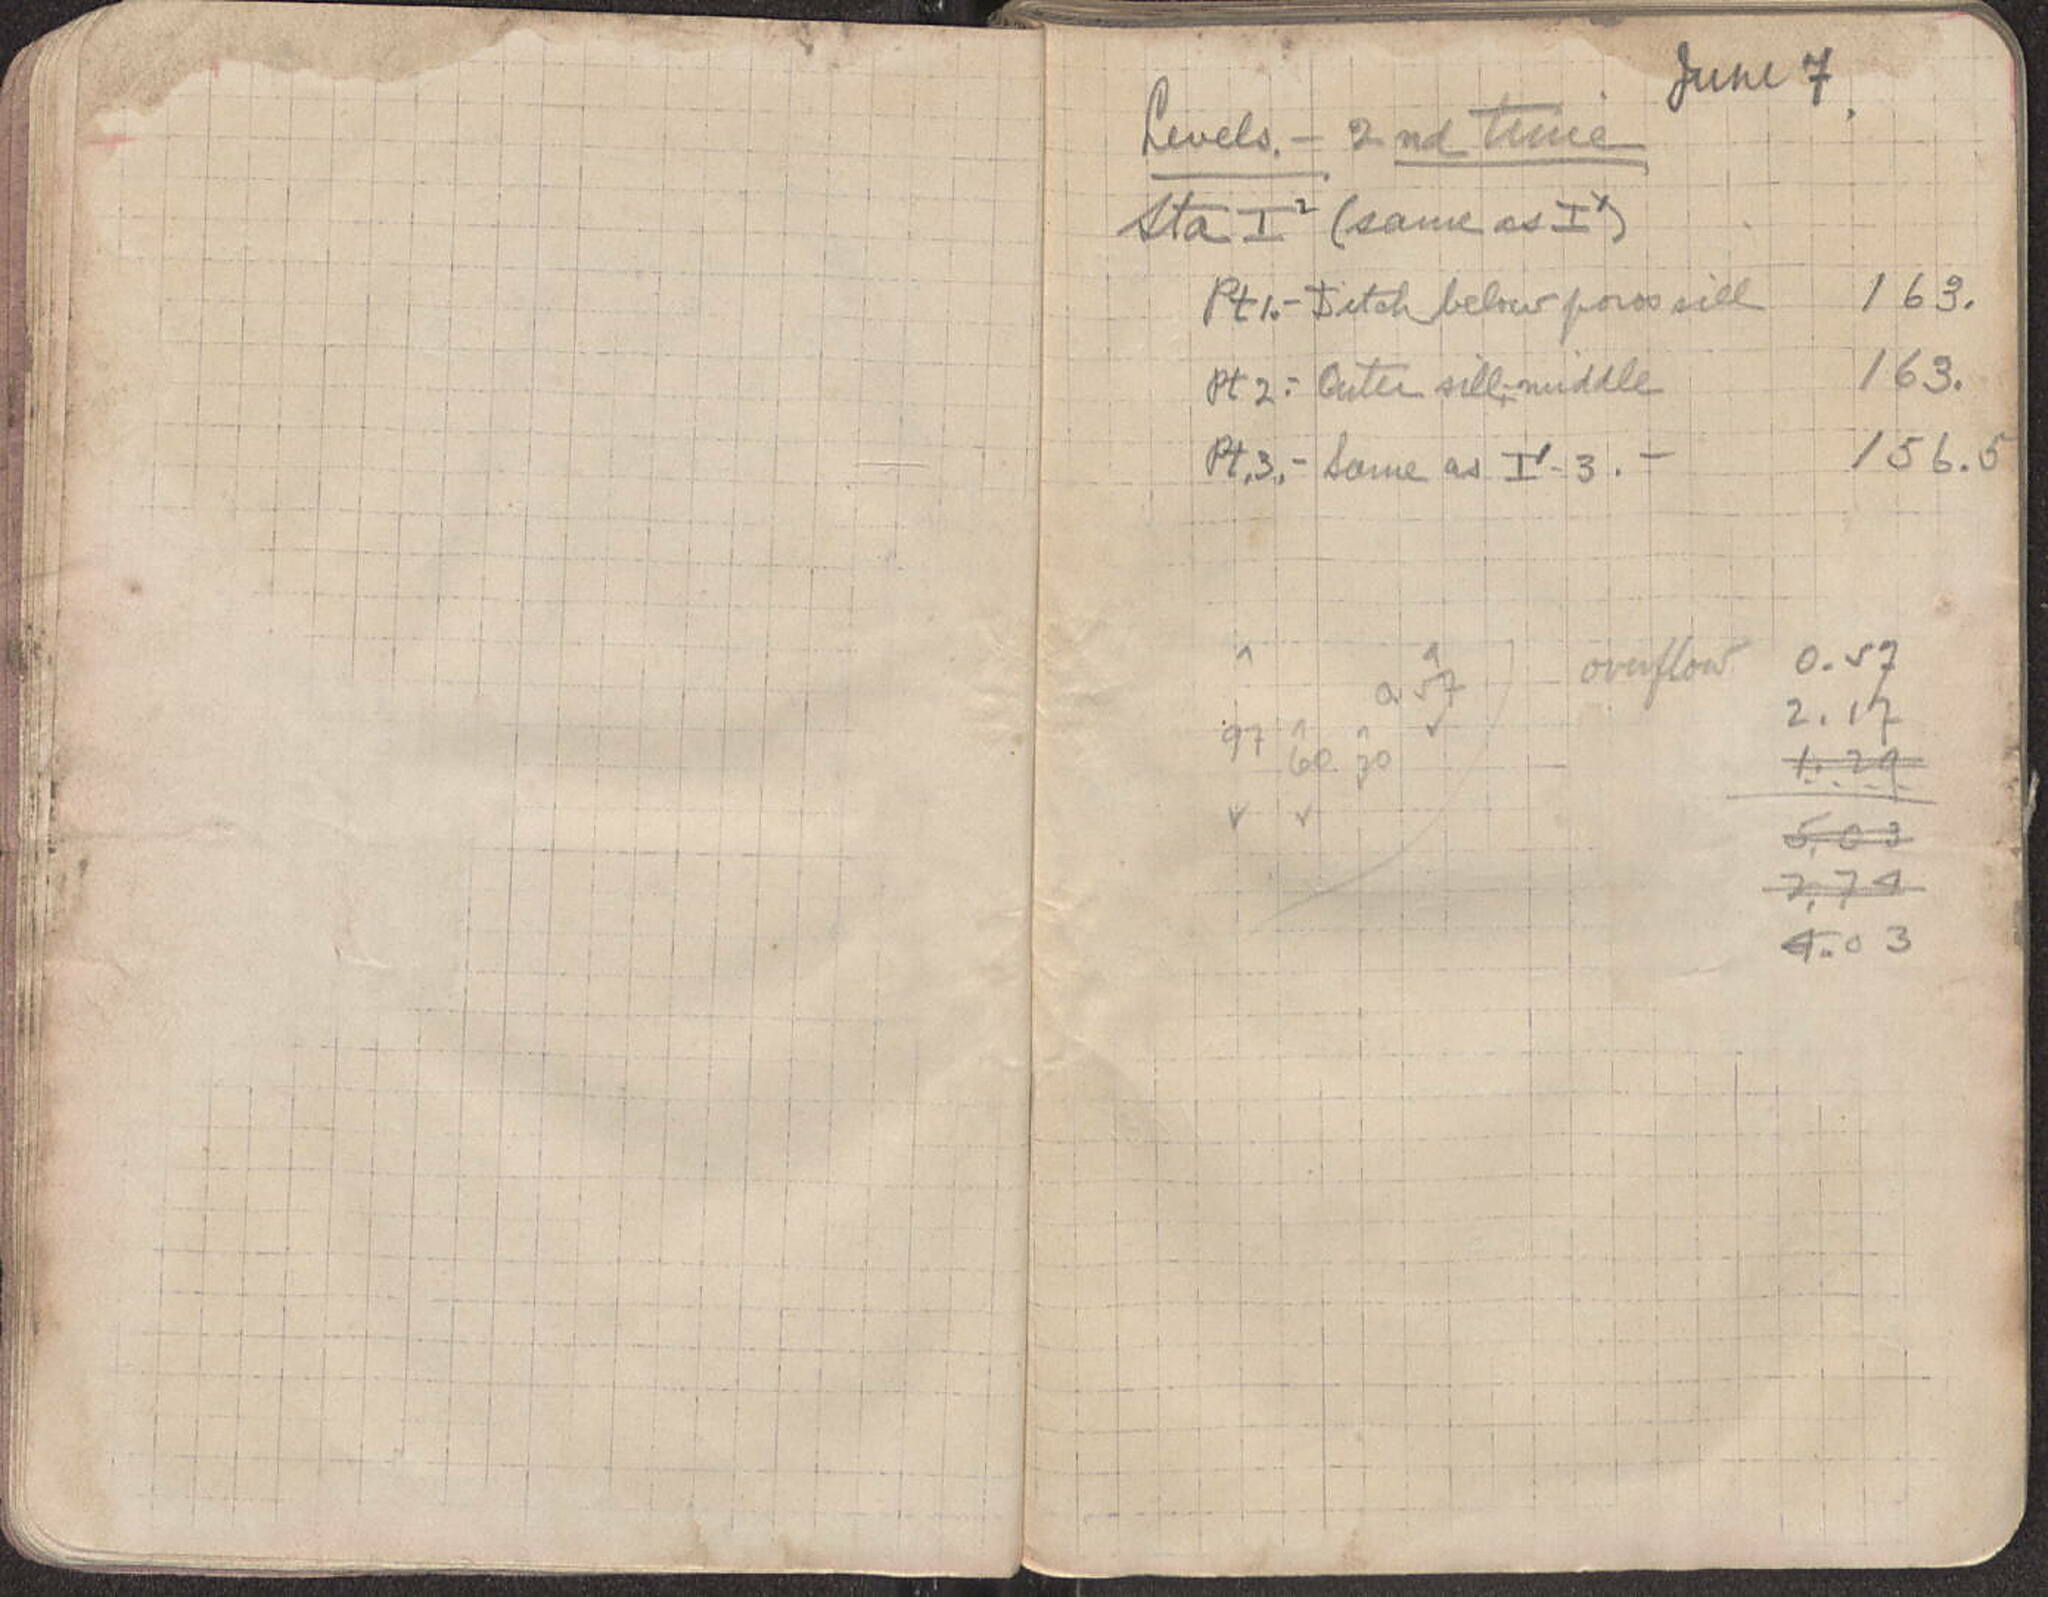 June 7.
Levels. - 2nd time
Sta I² (same as I')
Pt 1. - Ditch below poros sill 163.
Pt 2. - Outer sill, middle 163.
Pt. 3. - Same as I' - 3. - 156.5
overflow 0.57
0.57
2.17
97 60
1.29
5.03
2.74
4.03